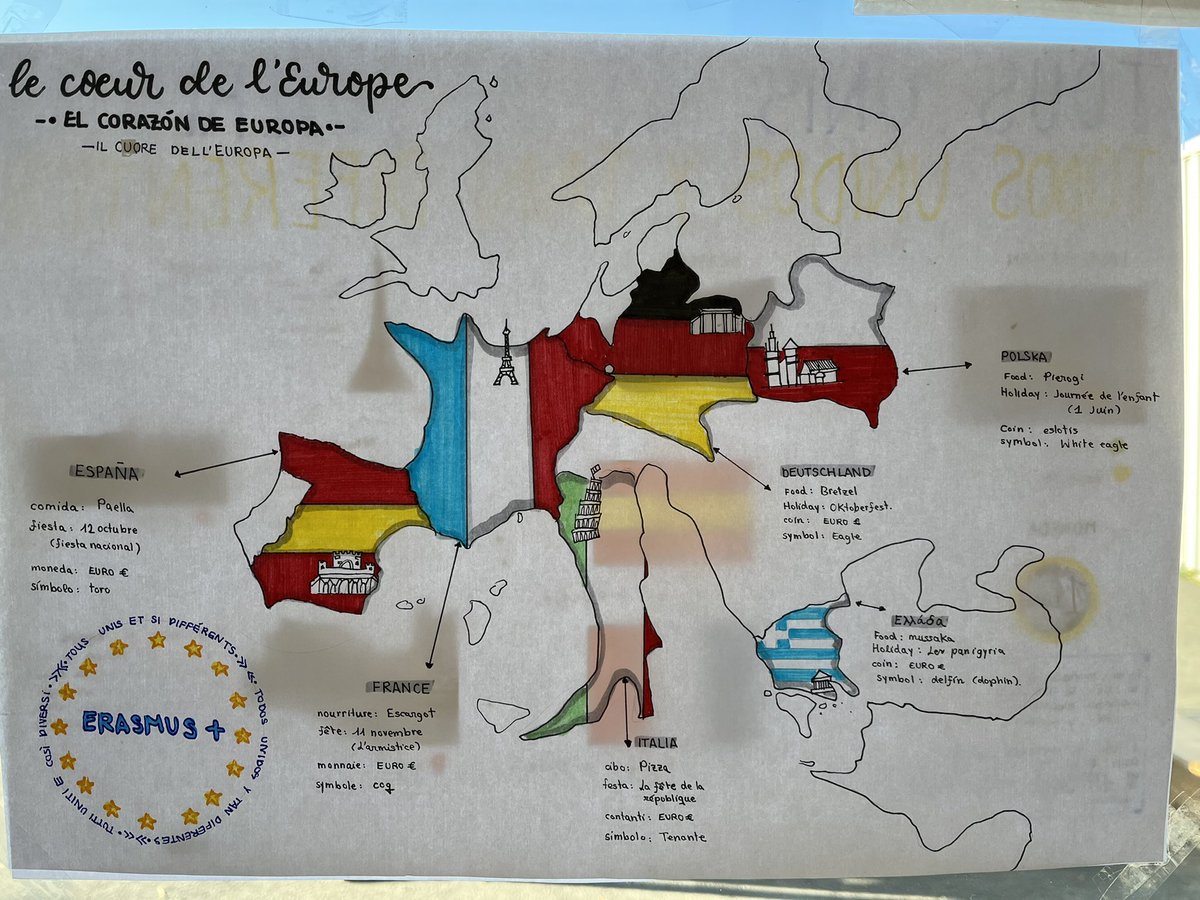 le coeur de l'Europe
-• EL CORAZÓN DE EUROPA •-
— IL CUORE DELL'EUROPA —
TODOS UNIDOS
POLSKA
Food: Pierogi
Holiday: Journée de l'enfant
(1 Juin)
Coin: eslotis
symbol: White eagle
ESPAÑA
comida: Paella
fiesta: 12 octubre
(fiesta nacional)
moneda: EURO €
símbolo: toro
DEUTSCHLAND
Food: Bretzel
Holiday: Oktoberfest.
coin: EURO €
symbol: Eagle
Ελλάδα
Food: mussaka
Holiday: Lov panigyria
coin: EURO €
Symbol: delfín (dophin).
FRANCE
nourriture: Escargot
fête: 11 novembre
(L'armistice)
monnaie: EURO €
symbole: coq
ITALIA
cibo: Pizza
festa: La fête de la
république
contanti: EURO €
símbolo: Tenante
TOUS UNIS ET SI DIFFÉRENTS
TODOS UNIDOS Y TAN DIFERENTES
TUTTI UNITI E COSÌ DIVERSI
ERASMUS +